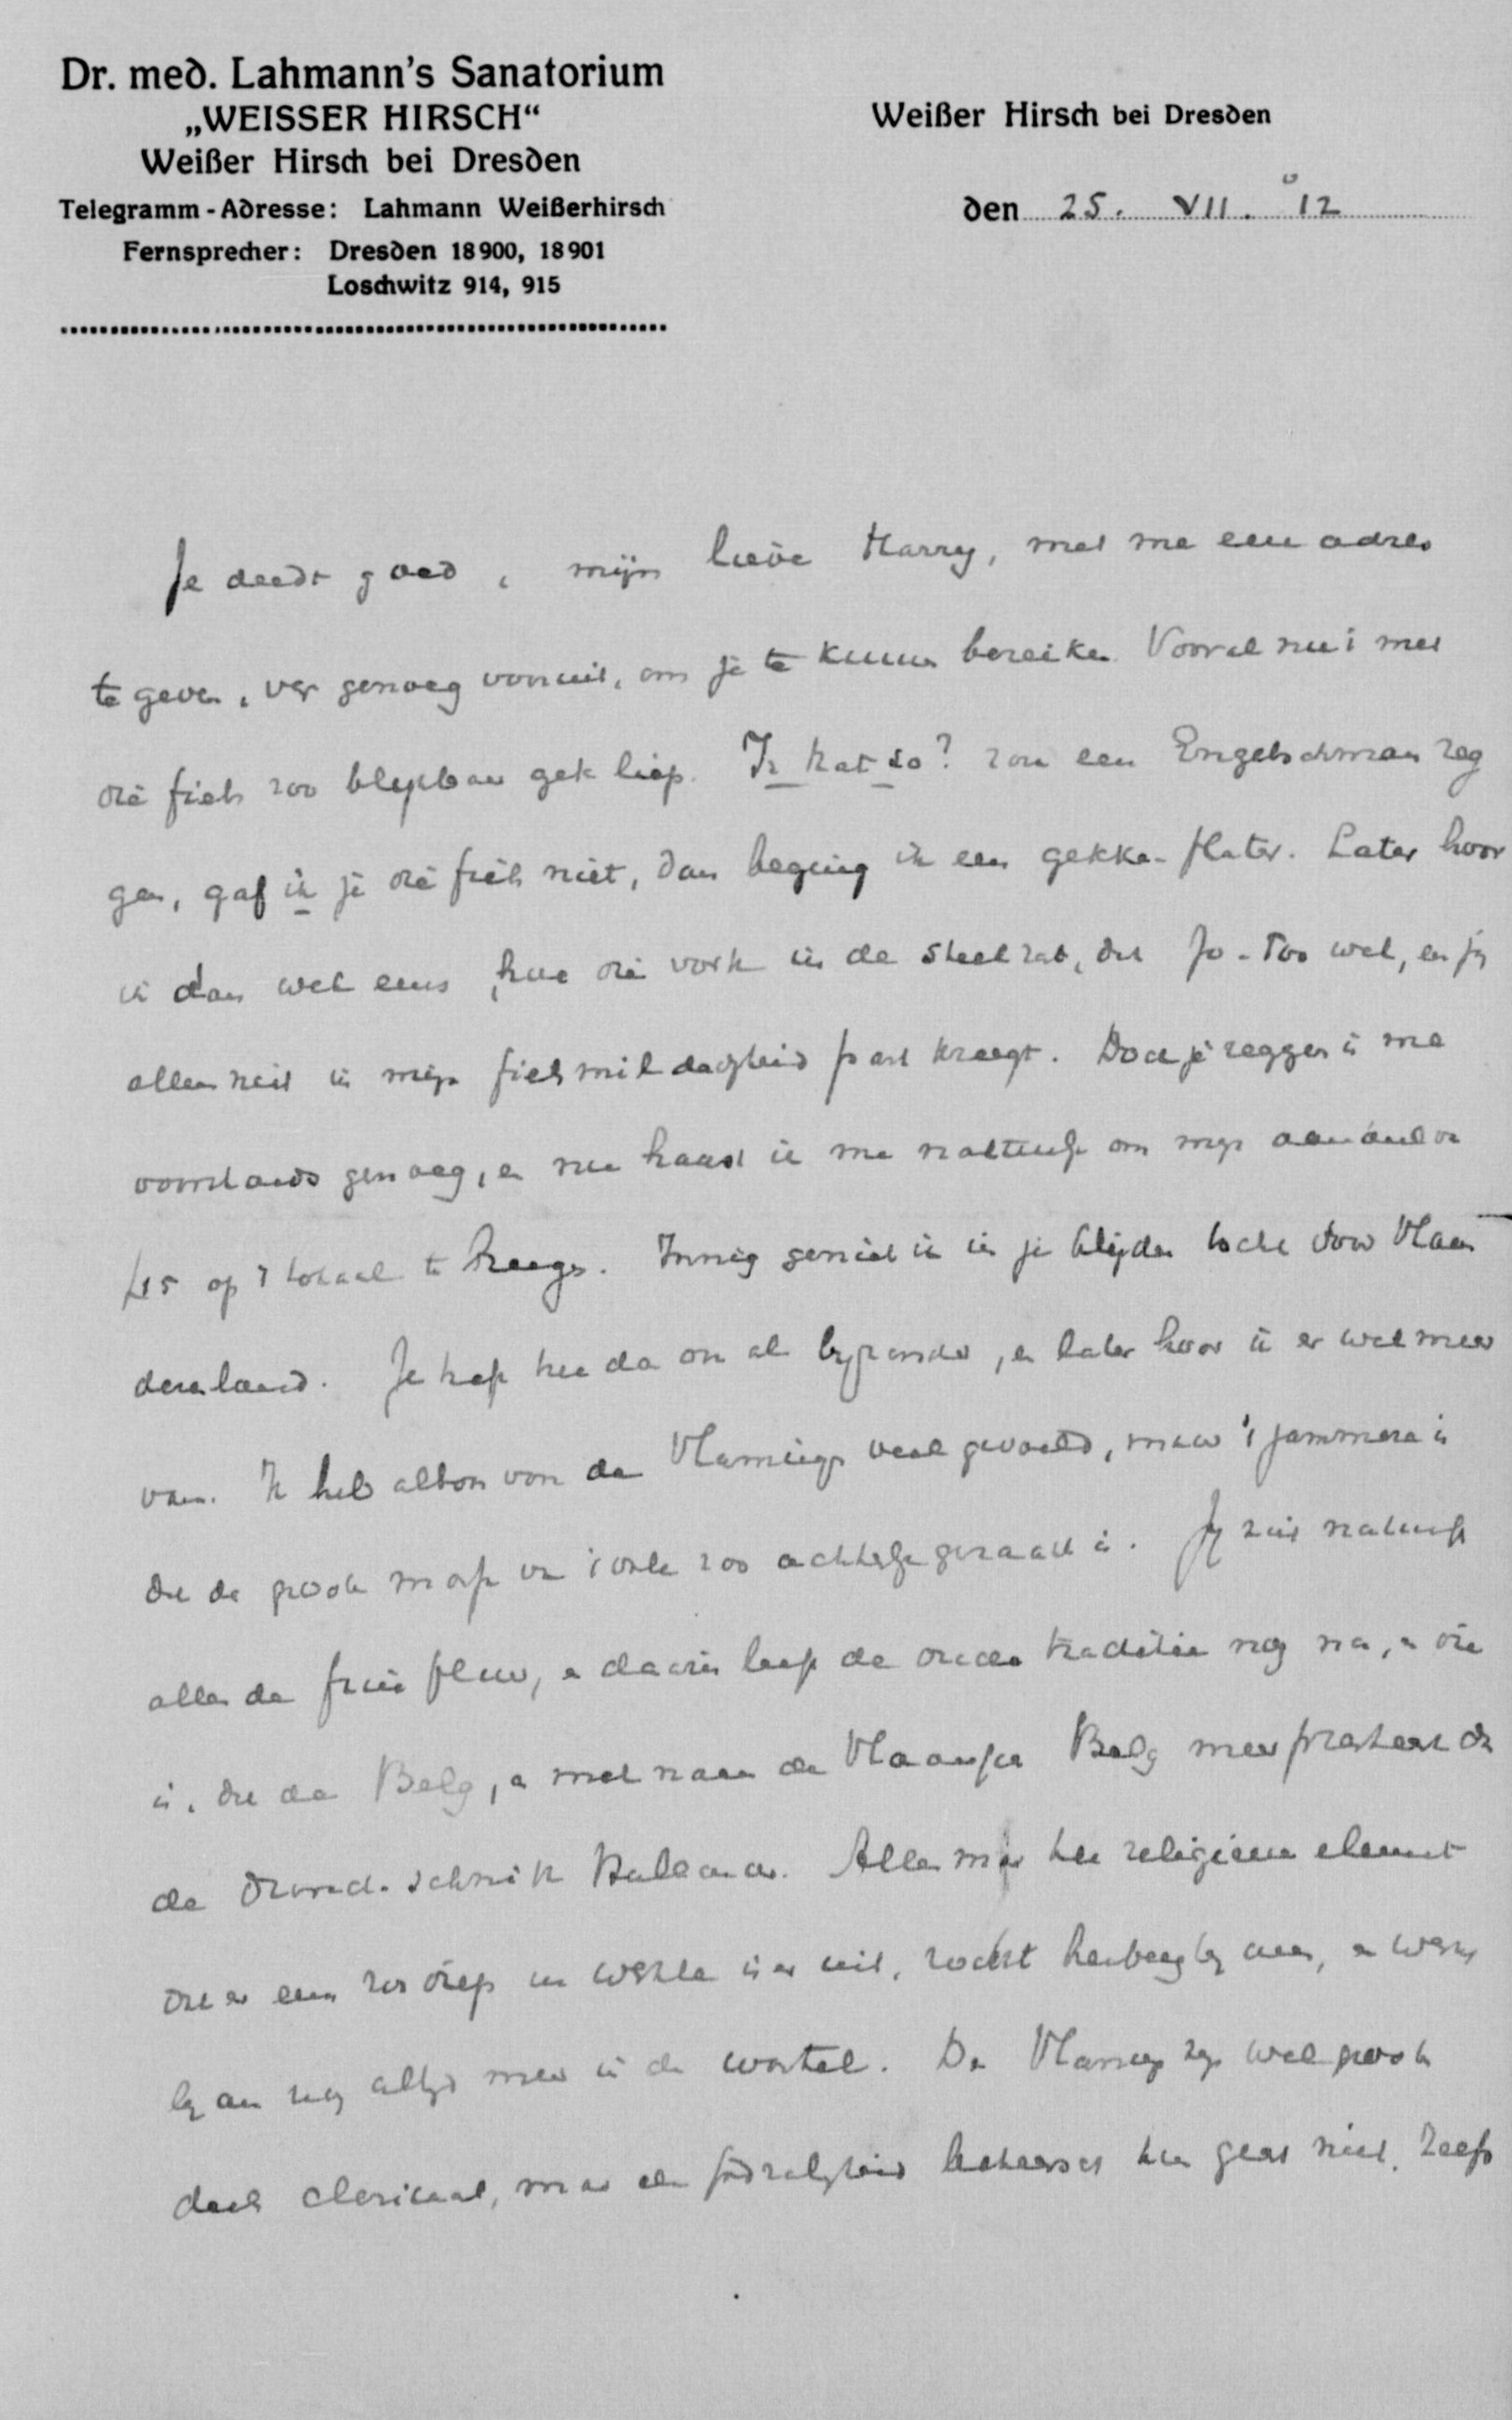 Dr. med. Lahmann's Sanatorium
„WEISSER HIRSCH“
Weißer Hirsch bei Dresden
Telegramm-Adresse: Lahmann Weißerhirsch
Fernsprecher: Dresden 18900, 18901
Loschwitz 914, 915
Weißer Hirsch bei Dresden
den 25. VII. 12
Je deedt goed, mijn lieve Harry, met me een adres
te geven, ver genoeg vooruit, om je te kunnen bereiken. Vooral nu 't met
die fiets zoo blijkbaar gek liep. Is that so? zou een Engelschman zeg
gen, gaf ik je die fiets niet, dan beging ik een gekke flater. Later hoor
ik dan wel eens, hoe die vork in de steel zat, dat Jo-Too wel, en jij
alleen niet in mijn fietsmildadigheid part kreegt. Doch je zeggen is me
voorshands genoeg, en nu haast ik me natuurlijk om mijn aandeel
op 't totaal te krijgen. Innig geniet ik in je blijden tocht door Vlaan
derenland. Je hebt het da on al bijzonder, en later hoor ik er wel meer
van. Ik heb altoos von de Vlamingen veel gevoeld, maar 't jammere is
dat de groote massa van 't volk zoo achterlijk geraakt is. Jij ziet natuurlijk
alleen de fine fleur, en daarin leeft de oude traditie nog na, en die
is, dat de Belg, en met name de Vlaamsche Belg meer presteert dan
de Noord. Alleen maar het religieus element
dat er eens zoo diep in werkte is er uit, en werkt
bij ons nog altijd meer in de wortel. De Vlamingen zijn wel groote
deels clericaal, maar de godzaligheid beheerscht hun geest niet. Zelfs